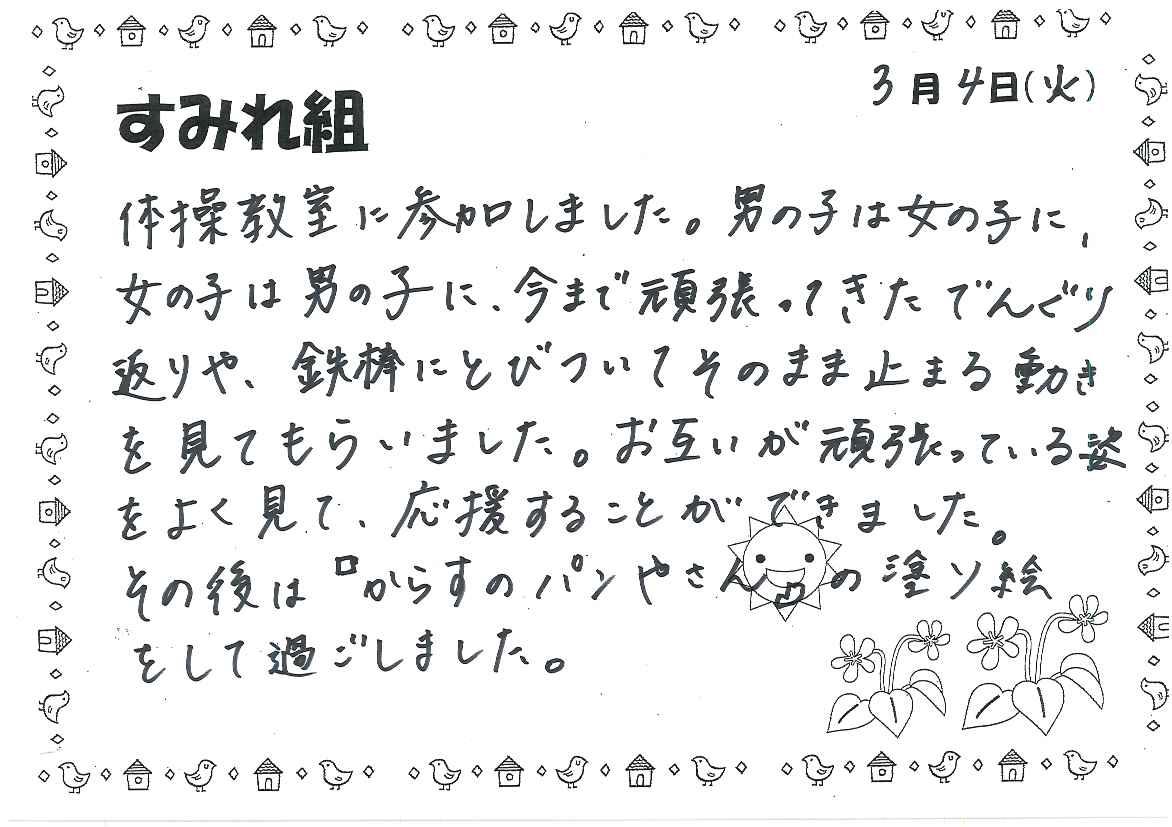 3月4日(火)
すみれ組
体操教室に参加しました。男の子は女の子に、
女の子は男の子に、今まで頑張ってきたでんぐり
返りや、鉄棒にとびついてそのまま止まる動き
を見てもらいました。お互いが頑張っている姿
をよく見て、応援することができました。
その後は『からすのパンやさん』の塗り絵
をして過ごしました。